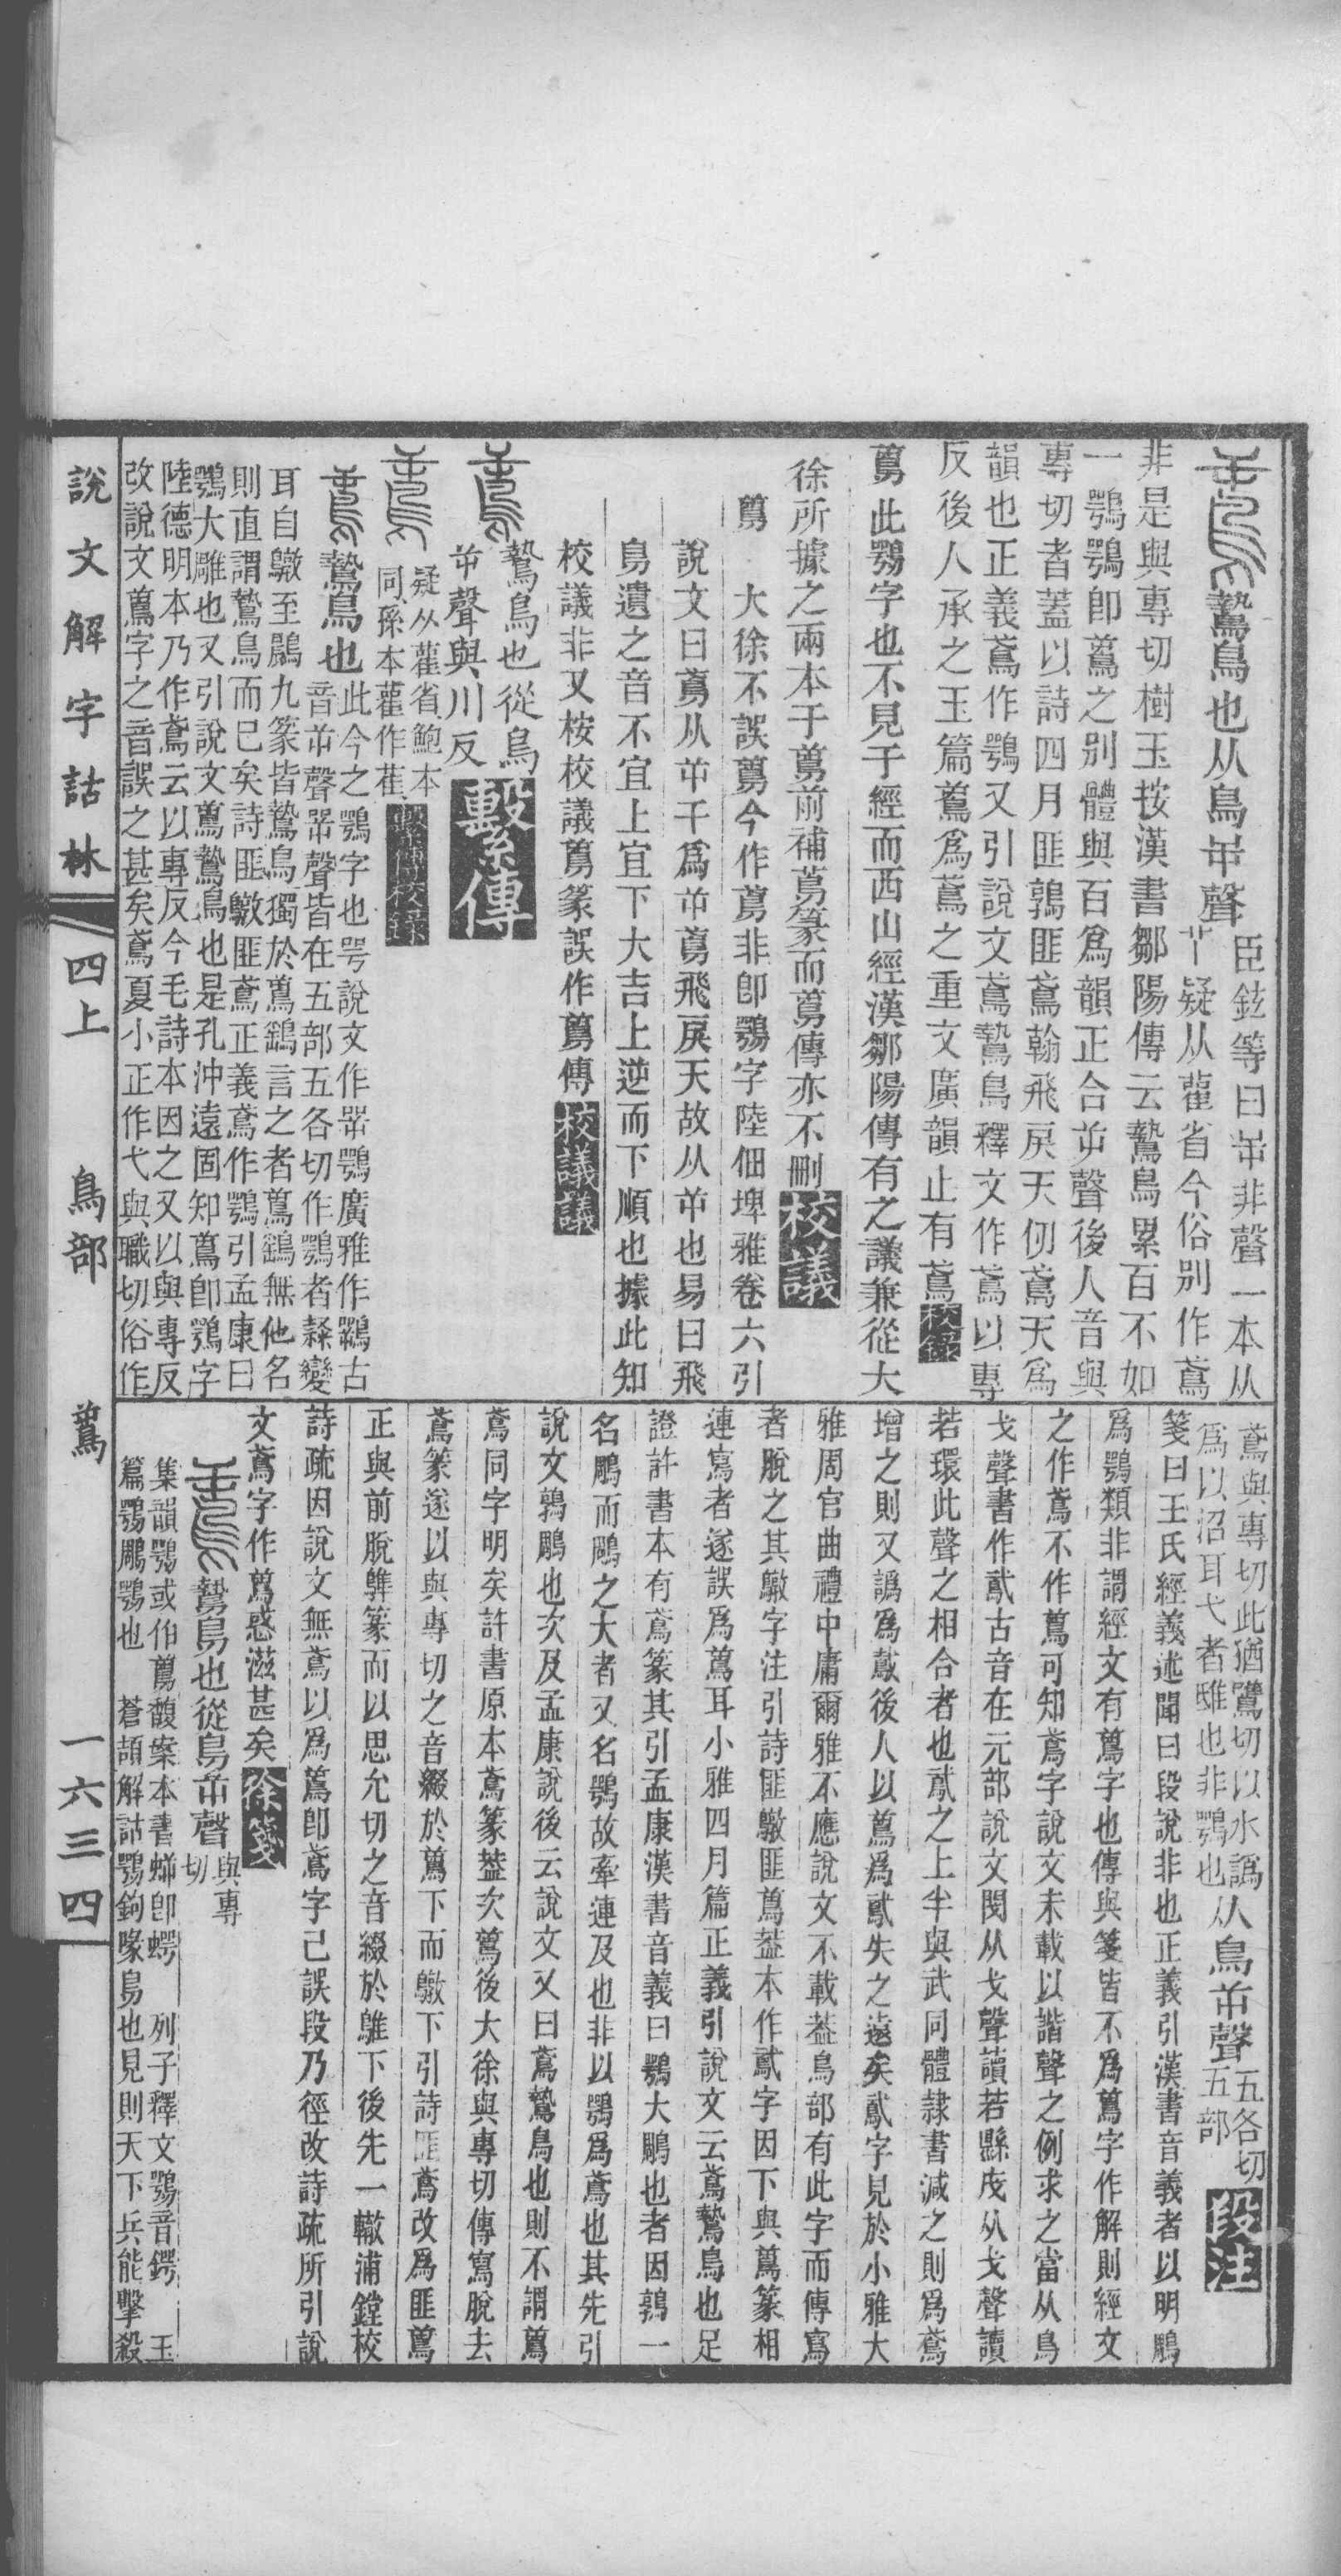 鷙鳥也从鳥屰聲臣鉉等曰屰非聲一本从
丫疑从雚省今俗別作鳶
非是與專切樹玉按漢書鄒陽傳云鷙鳥累百不如
一鶚鶚卽鷻之別體與百爲韻正合屰聲後人音與
專切者蓋以詩四月匪鶉匪鳶翰飛戾天仞鳶天爲
韻也正義鳶作鶚又引說文鳶鷙鳥釋文作鳶以專
反後人承之玉篇䳗爲鳶之重文廣韻止有鳶校錄
䳗此鶚字也不見于經而西山經漢鄒陽傳有之議兼從大
徐所據之兩本于䳗前補蔦篆而䳗傳亦不刪校議
䳗 大徐不誤䳗今作蔦非卽鶚字陸佃埤雅卷六引
說文曰䳗从屰千爲屰䳗飛戾天故从屰也易曰飛
鳥遺之音不宜上宜下大吉上逆而下順也據此知
校議非又桉校議䳗篆誤作䳗傳校議議
鷙鳥也從鳥
屰聲與川反繫傳
疑从雚省鮑本
同孫本雚作萑繫傳校錄
鷙鳥也此今之鶚字也咢說文作㖾鶚廣雅作鷽古
音屰聲㖾聲皆在五部五各切作鶚者隸變
耳自鷻至鷐九篆皆鷙鳥獨於䳗鷂言之者䳗鷂無他名
則直謂鷙鳥而已矣詩匪鷻匪鳶正義鳶作鶚引孟康曰
鶚大雕也又引說文䳗鷙鳥也是孔沖遠固知䳗卽鶚字
陸德明本乃作鳶云以專反今毛詩本因之又以與專反
改說文䳗字之音誤之甚矣鳶夏小正作弋與職切俗作
鳶與專切此猶鷕切以水譌
爲以沼耳弋者鴟也非鶚也从鳥屰聲五各切
五部段注
箋曰王氏經義述聞曰段說非也正義引漢書音義者以明鵰
爲鶚類非謂經文有䳗字也傳與箋皆不爲䳗字作解則經文
之作鳶不作䳗可知鳶字說文未載以諧聲之例求之當从鳥
戈聲書作鳶古音在元部說文閔从戈聲讀若縣戍从戈聲讀
若環此聲之相合者也鳶之上半與武同體隸書減之則爲鳶
增之則又譌爲䳗後人以䳗爲鳶失之遠矣鳶字見於小雅大
雅周官曲禮中庸爾雅不應說文不載葢鳥部有此字而傳寫
者脫之其鷻字注引詩匪鷻匪䳗葢本作鳶字因下與䳗篆相
連寫者遂誤爲䳗耳小雅四月篇正義引說文云鳶鷙鳥也足
證許書本有鳶篆其引孟康漢書音義曰鶚大鵰也者因鶉一
名鵰而鵰之大者又名鶚故牽連及也非以鶚爲鳶也其先引
說文鶉鵰也次及孟康說後云說文又曰鳶鷙鳥也則不謂䳗
鳶同字明矣許書原本鳶篆葢次䳗後大徐與專切傳寫脫去
鳶篆遂以與專切之音綴於䳗下而鷻下引詩匪鳶改爲匪䳗
正與前脫鵻篆而以思允切之音綴於鵻下後先一轍浦鏜校
詩疏因說文無鳶以爲䳗卽鳶字已誤段乃徑改詩疏所引說
文鳶字作䳗惑滋甚矣徐箋
鷙鳥也從鳥屰聲與專
切
集韻鶚或作䳗馥案本書蝉卽蝷 列子釋文鶚音鍔 玉
篇鶚鵰鶚也 蒼頡解詁鶚鉤喙鳥也見則天下兵能擊殺
說文解字詁林 四上 鳥部 䳗 一六三四